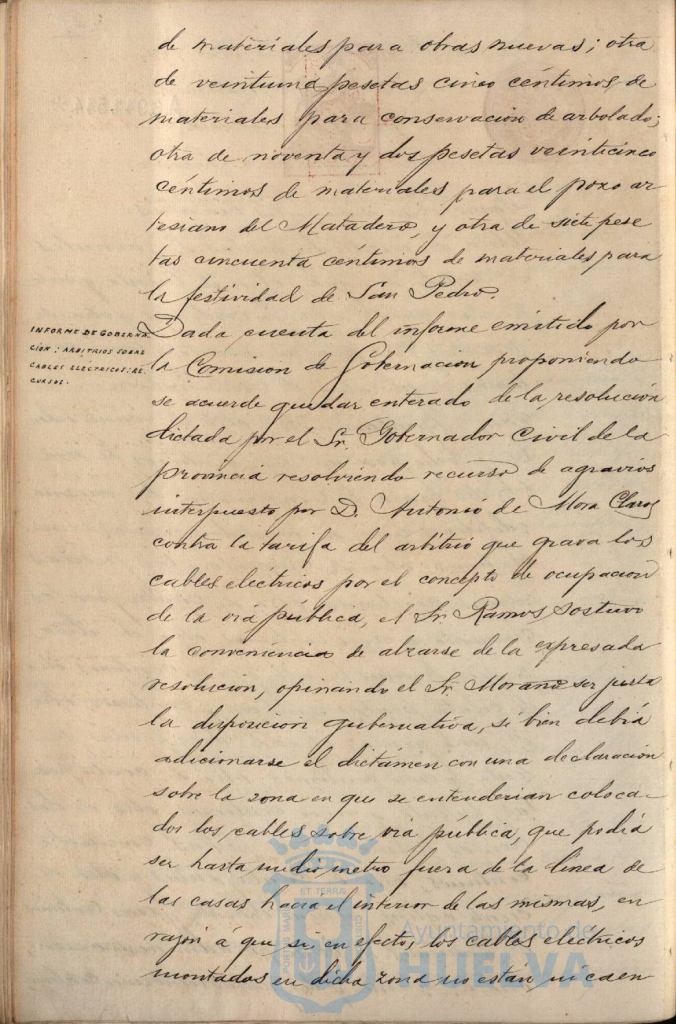 de materiales para obras nuevas; otra
de veintiuna pesetas cinco céntimos de
materiales para conservación de arbolado;
otra de noventa y dos pesetas veinticinco
céntimos de materiales para el pozo ar
tesiano del Matadero, y otra de siete pese
tas cincuenta céntimos de materiales para
la festividad de San Pedro.
INFORME DE GOBERNA
CIÓN; ARBITRIOS SOBRE
CABLES ELECTRICOS: RE
CURSOS.
Dada cuenta del informe emitido por
la Comision de Gobernacion proponiendo
se acuerde quedar enterado de la resolución
dictada por el Sr. Gobernador Civil de la
provincia resolviendo recurso de agravios
interpuesto por D. Antonio de Mora Claros
contra la tarifa del arbitrio que grava los
cables eléctricos por el concepto de ocupacion
de la via pública, el Sr. Ramos sostuvo
la conveniencia de alzarse de la expresada
resolucion, opinando el Sr. Morano ser justa
la disposicion gubernativa, si bien debiá
adicionarse el dictámen con una declaración
sobre la zona en que se entenderian coloca-
dos los cables sobre via pública, que podiá
ser hasta medio metro fuera de la linea de
las casas hacia el interior de las mismas, en
razón á que si, en efecto, los cables electricos
montados en dicha zona no están ni caen
ET TERRÆ
Ayuntamiento de
HUELVA